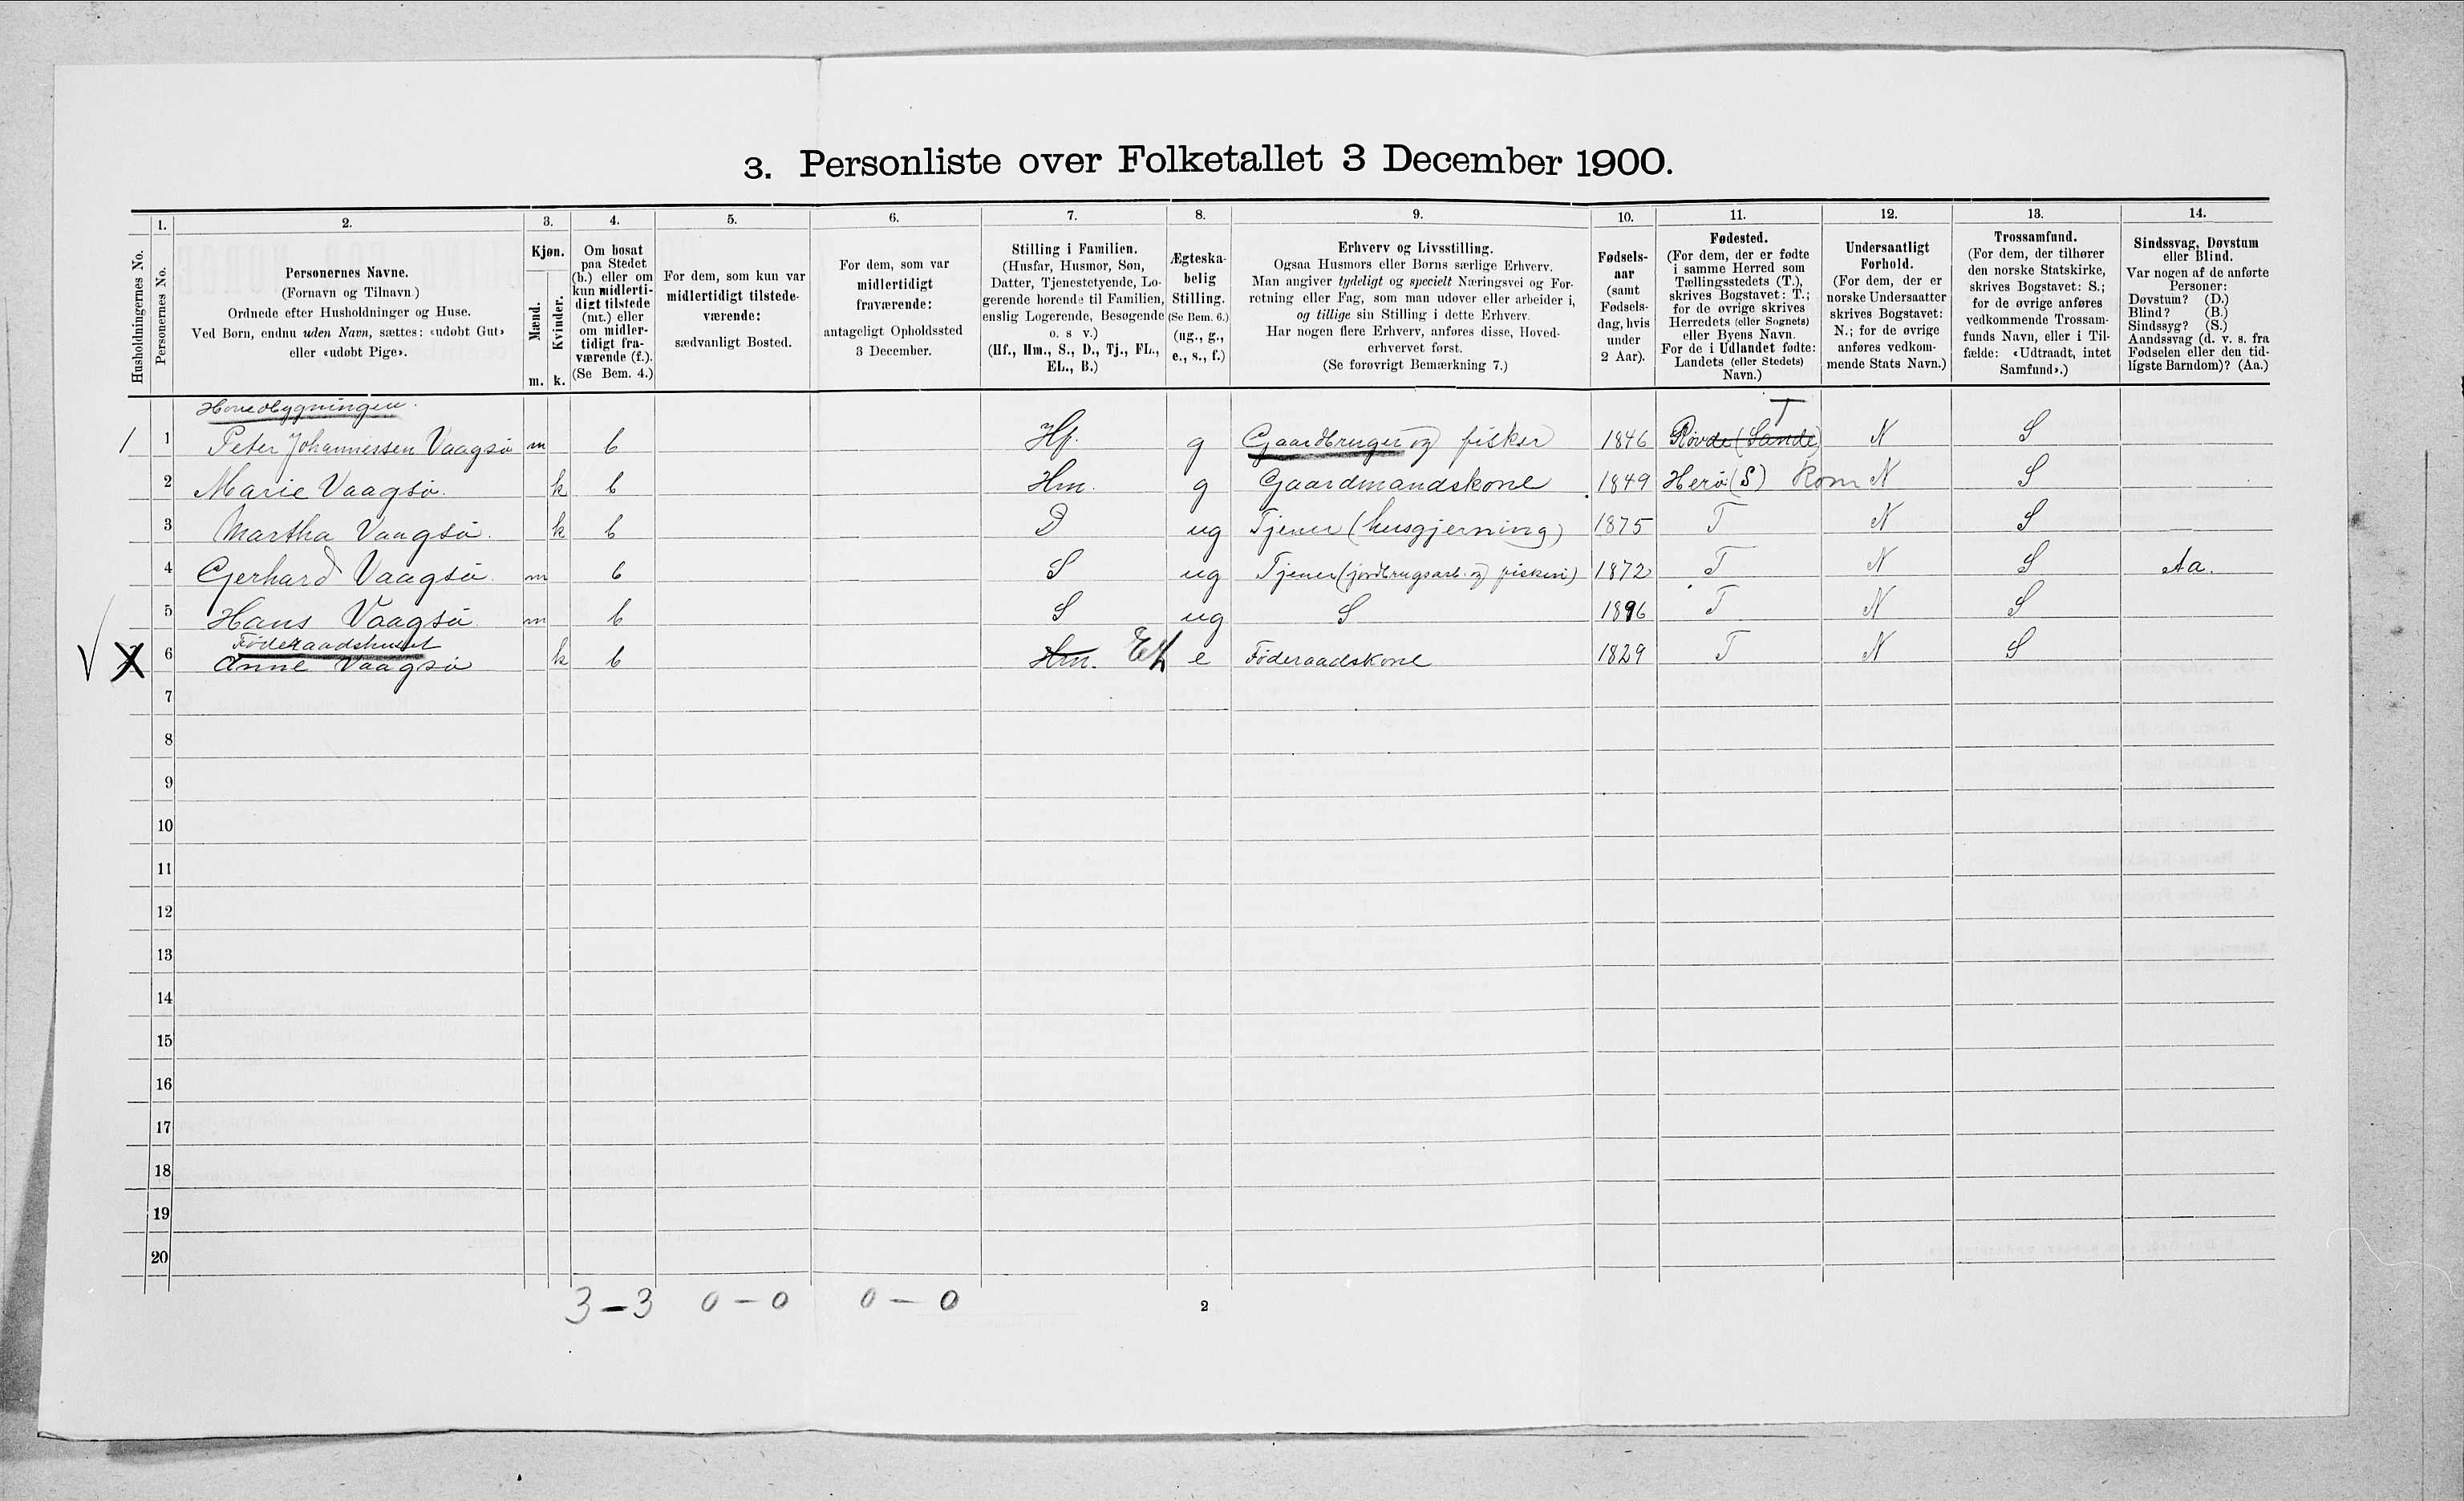 3. Personliste over Folketallet 3 December 1900.
1. 2. 3. 4. 5. 6. 7. 8. 9. 10. 11. 12. 13. 14.
Husholdningernes No.
Personernes No.
Personernes Navne.
(Fornavn og Tilnavn.)
Ordnede efter Husholdninger og Huse.
Ved Børn, endnu uden Navn, sættes: «udøbt Gut»
eller «udøbt Pige».
Kjøn.
Mænd.
Kvinder.
m. k.
Om bosat
paa Stedet
(b.) eller om
kun midlerti-
digt tilstede
(mt.) eller
om midler-
tidigt fra-
værende (f.).
(Se Bem. 4.)
For dem, som kun var
midlertidigt tilstede-
værende:
sædvanligt Bosted.
For dem, som var
midlertidigt
fraværende:
antageligt Opholdssted
3 December.
Stilling i Familien.
(Husfar, Husmor, Søn,
Datter, Tjenestetyende, Lo-
gerende hørende til Familien,
enslig Logerende, Besøgende
o. s v.)
(Hf., Hm., S., D., Tj., FL.,
EL., B.)
Ægteska-
belig
Stilling.
(Se Bem. 6.)
(ug., g.,
e., s., f.)
Erhverv og Livsstilling.
Ogsaa Husmors eller Børns særlige Erhverv.
Man angiver tydeligt og specielt Næringsvei og For-
retning eller Fag, som man udøver eller arbeider i,
og tillige sin Stilling i dette Erhverv.
Har nogen flere Erhverv, anføres disse, Hoved-
erhvervet først.
(Se forøvrigt Bemærkning 7.)
Fødsels-
aar
(samt
Fødsels-
dag, hvis
under
2 Aar).
Fødested.
(For dem, der er fødte
i samme Herred som
Tællingsstedets (T.),
skrives Bogstavet: T.;
for de øvrige skrives
Herredets (eller Sognets)
eller Byens Navn.
For de i Udlandet fødte:
Landets (eller Stedets)
Navn.)
Undersaatligt
Forhold.
(For dem, der er
norske Undersaatter
skrives Bogstavet:
N.; for de øvrige
anføres vedkom-
mende Stats Navn.)
Trossamfund.
(For dem, der tilhører
den norske Statskirke,
skrives Bogstavet: S.;
for de øvrige anføres
vedkommende Trossam-
funds Navn, eller i Til-
fælde: «Udtraadt, intet
Samfund».)
Sindssvag, Døvstum
eller Blind.
Var nogen af de anførte
Personer:
Døvstum? (D.)
Blind? (B.)
Sindssyg? (S.)
Aandssvag (d. v. s. fra
Fødselen eller den tid-
ligste Barndom)? (Aa.)
Hovedbygningen. T
1 1 Peter Johannessen Vaagsø m b Hf. g Gaardbruger og fisker 1846 Røvde (Sande) N S
2 Marie Vaagsø. k b Hm. g Gaardmandskone 1849 Herø (S) Rom N S
3 Martha Vaagsø. k b D ug Tjener (husgjerning) 1875 T N S
4 Gerhard Vaagsø. m b S ug Tjener (jordbrugsarb. og fiskeri) 1872 T N S Aa.
5 Hans Vaagsø. m b S ug S 1896 T N S
Føderaadshuset
6 Anne Vaagsø k b Hm. El e Føderaadskone 1829 T N S
7
8
9
10
11
12
13
14
15
16
17
18
19
20
3-3 0-0 0-0 2